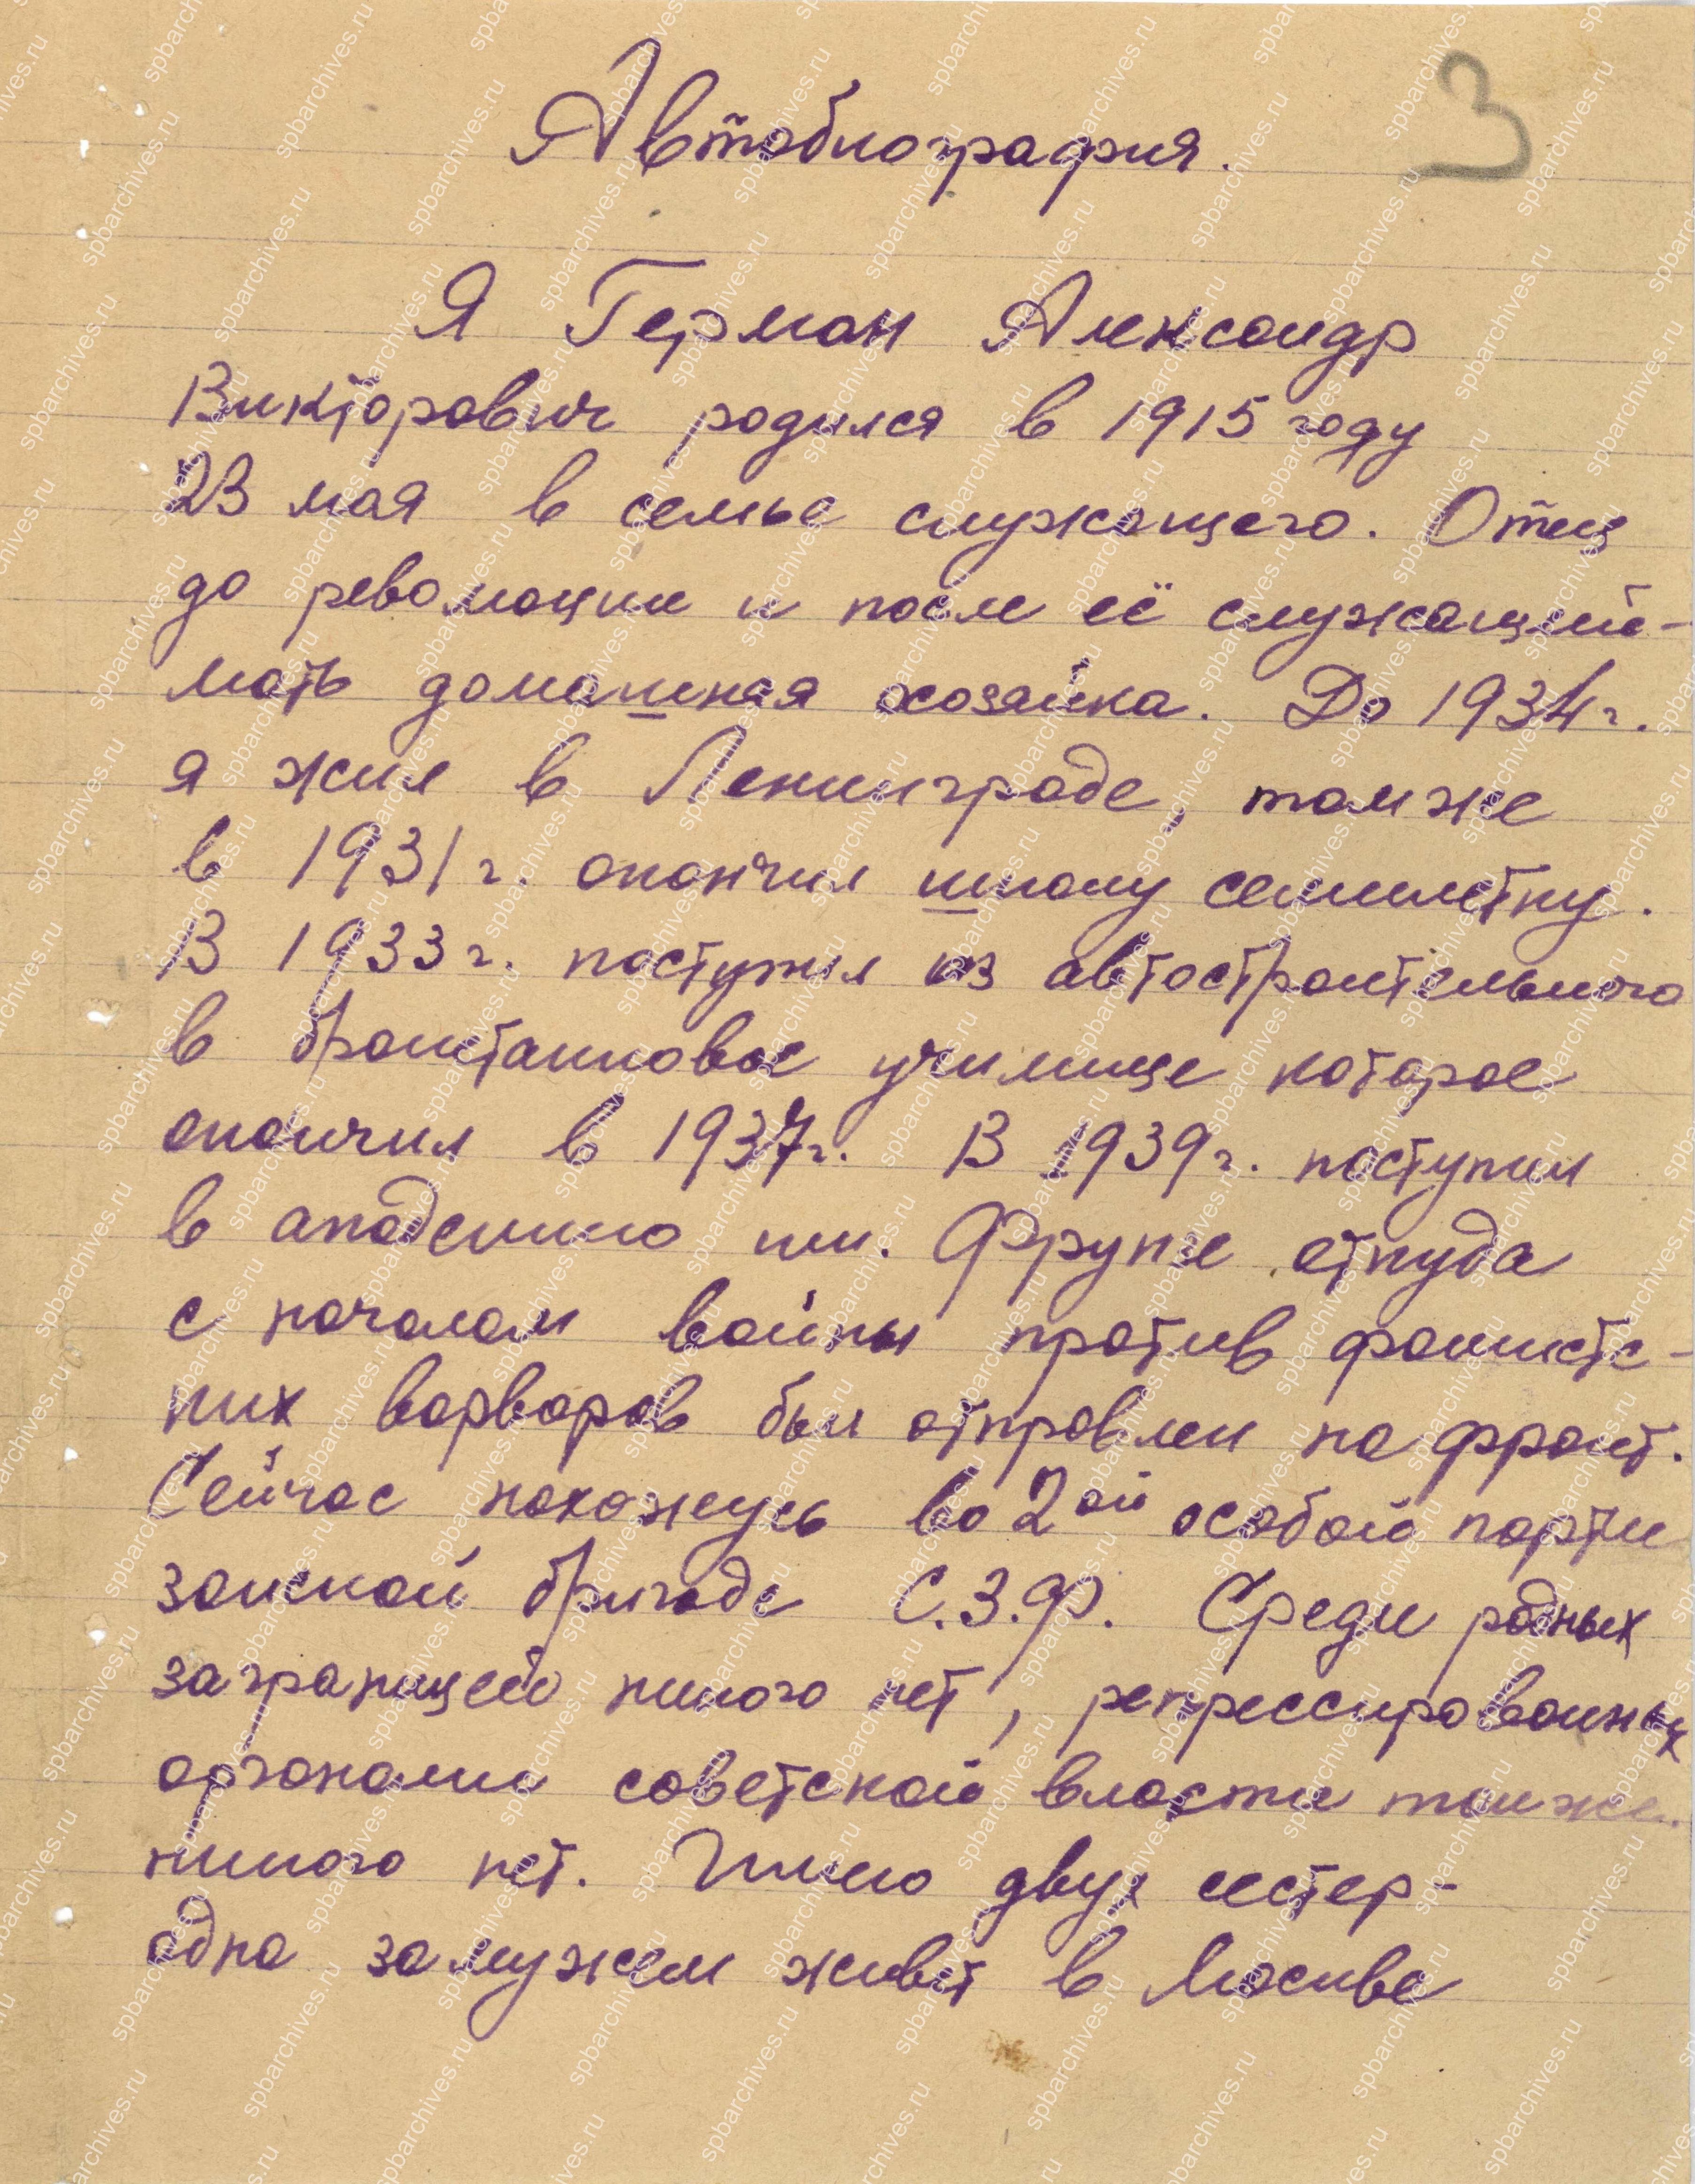 3
Автобиография.
Я Герман Александр
Викторович родился в 1915 году
23 мая в семье служащего. Отец
до революции и после её служащий-
мать домашняя хозяйка. До 1934 г.
я жил в Ленинграде, там же
в 1931 г. окончил школу семилетку.
В 1933 г. поступил из автостроительного
в бронетанковое училище которое
окончил в 1937 г. В 1939 г. поступил
в академию им. Фрунзе откуда
с началом войны против фашистс-
ких варваров был отправлен на фронт.
Сейчас нахожусь во 2ой особой парти
занской бригаде С.З.Ф. Среди родных
заграницей никого нет, репрессированных
органами советской власти также
никого нет. Имею двух сестер-
одна замужем живёт в Москве